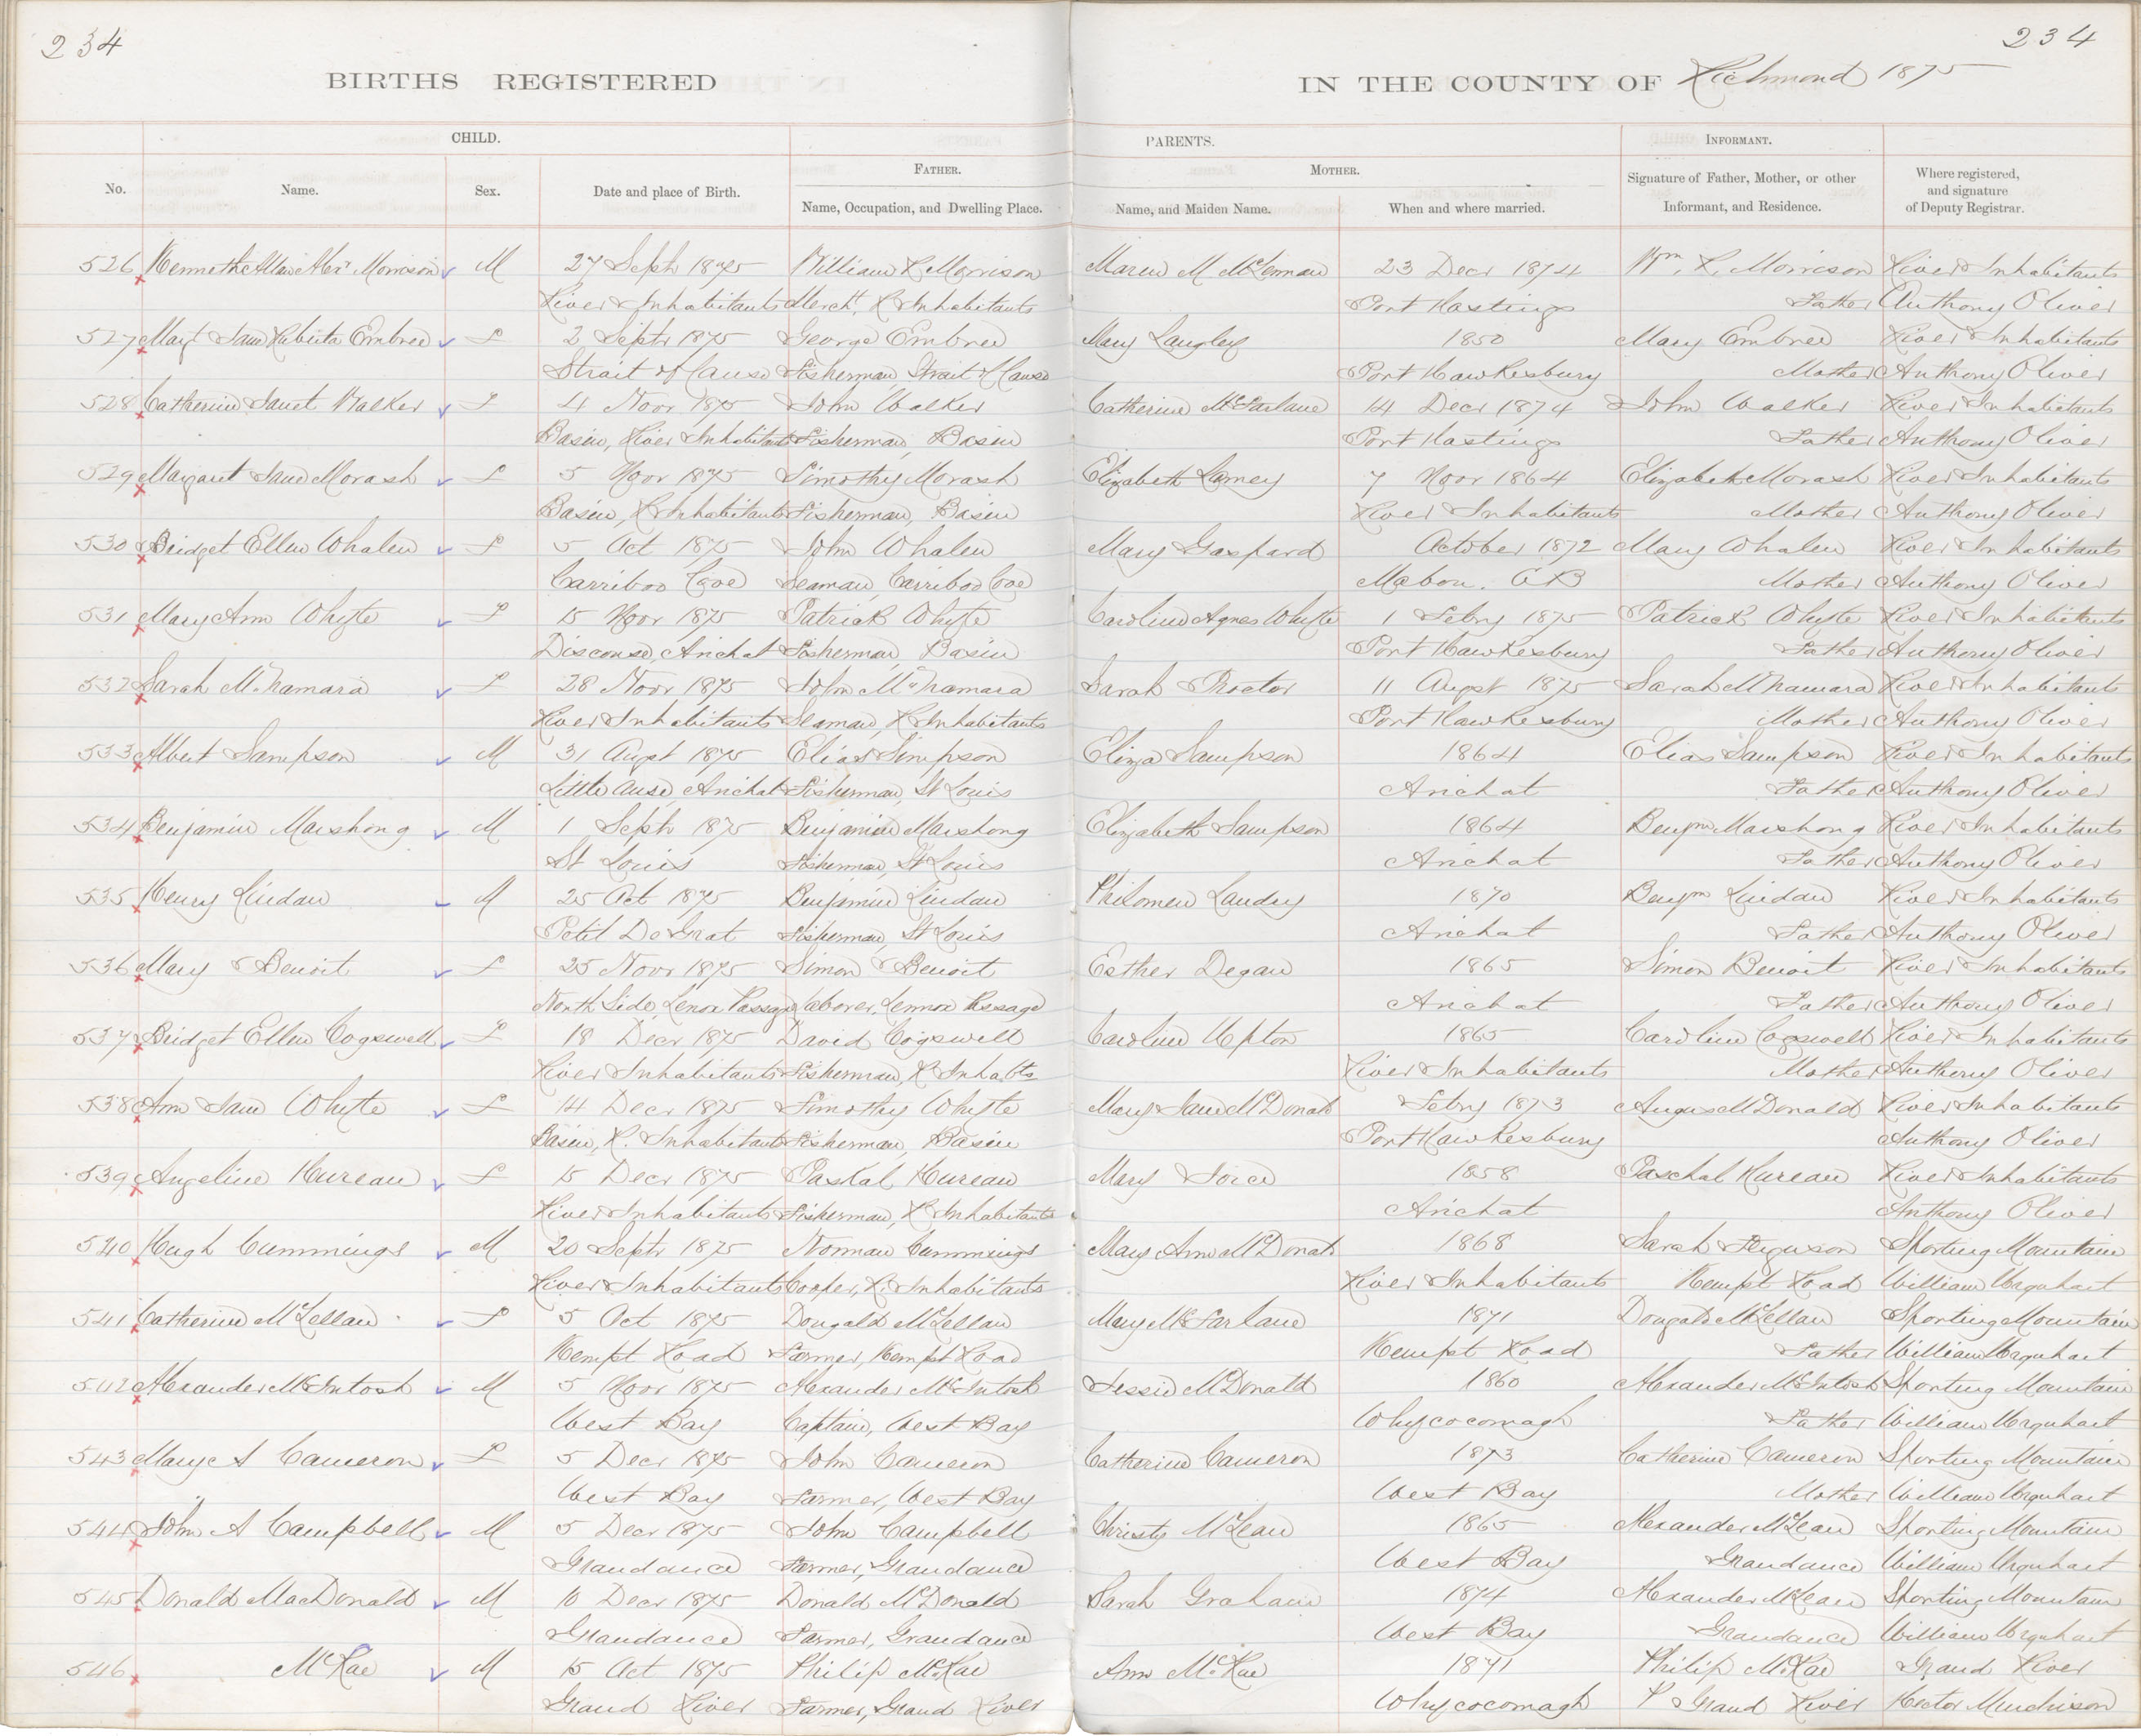 234
234
BIRTHS REGISTERED
IN THE COUNTY OF Richmond 1875
CHILD.
PARENTS.
INFORMANT.
No.
Name.
Sex.
Date and place of Birth.
FATHER.
Name, Occupation, and Dwelling Place.
MOTHER.
Name, and Maiden Name.
When and where married.
Signature of Father, Mother, or other Informant, and Residence.
Where registered, and signature of Deputy Registrar.
526 Kenneth Allan Alexr Morrison M 27 Septr 1875 William R Morrison Maren M McLennan 23 Decr 1874 Wm. R. Morrison River Inhabitants
River Inhabitants Mercht, R Inhabitants Port Hastings Father Anthony Oliver
527 Margt Jane Rebecta Embree F 2 Septr 1875 George Embree Mary Langley 1850 Mary Embree River Inhabitants
Strait of Canso Fisherman, Strait of Canso Port Hawkesbury Mother Anthony Oliver
528 Catherine Janet Walker F 4 Novr 1875 John Walker Catherine McFarlane 14 Decr 1874 John Walker River Inhabitants
Basin, River Inhabitants Fisherman, Basin Port Hastings Father Anthony Oliver
529 Margaret Jane Morash F 5 Novr 1875 Timothy Morash Elizabeth Lamey 7 Novr 1864 Elizabeth Morash River Inhabitants
Basin, R Inhabitants Fisherman, Basin River Inhabitants Mother Anthony Oliver
530 Bridget Ellen Whalen F 5 Oct 1875 John Whalen Mary Gaspard October 1872 Mary Whalen River Inhabitants
Carriboo Cove Seaman, Carriboo Cove Mabou. CB Mother Anthony Oliver
531 Mary Ann Whyte F 15 Novr 1875 Patrick Whyte Caroline Agnes Whyte 1 Febry 1875 Patrick Whyte River Inhabitants
Discouse, Arichat Fisherman, Basin Port Hawkesbury Father Anthony Oliver
532 Sarah McNamara F 28 Novr 1875 John McNamara Sarah Proctor 11 Augst 1875 Sarah McNamara River Inhabitants
River Inhabitants Seaman, R Inhabitants Port Hawkesbury Mother Anthony Oliver
533 Albert Sampson M 31 Augst 1875 Elias Simpson Eliza Sampson 1864 Elias Sampson River Inhabitants
Little Anse, Arichat Fisherman, St Louis Arichat Father Anthony Oliver
534 Benjamin Marshong M 1 Septr 1875 Benjamin Marshong Elizabeth Sampson 1864 Benjm Marshong River Inhabitants
St Louis Fisherman, St Louis Arichat Father Anthony Oliver
535 Henry Lindau M 25 Oct 1875 Benjamin Lindau Philomen Landry 1870 Benjm Lindau River Inhabitants
Petit De Grat Fisherman, St Louis Arichat Father Anthony Oliver
536 Mary Benoit F 25 Novr 1875 Simon Benoit Esther Degau 1865 Simon Benoit River Inhabitants
North Side, Lenox Passage Laborer, Lennox Passage Arichat Father Anthony Oliver
537 Bridget Ellen Cogswell F 18 Decr 1875 David Cogswell Caroline Upton 1865 Caroline Cogswell River Inhabitants
River Inhabitants Fisherman, R Inhabts River Inhabitants Mother Anthony Oliver
538 Ann Jane Whyte F 14 Decr 1875 Timothy Whyte Mary Jane McDonald Febry 1873 Angus McDonald River Inhabitants
Basin, R. Inhabitants Fisherman, Basin Port Hawkesbury Anthony Oliver
539 Angeline Hureau F 15 Decr 1875 Paskal Hureau Mary Joice 1858 Paschal Hureau River Inhabitants
River Inhabitants Fisherman, R Inhabitants Arichat Anthony Oliver
540 Hugh Cummings M 20 Septr 1875 Norman Cummings Mary Ann McDonald 1868 Sarah Ferguson Sporting Mountain
River Inhabitants Cooper, R. Inhabitants River Inhabitants Kempt Road William Urquhart
541 Catherine McLellan F 5 Oct 1875 Dougald McLellan Mary McFarlane 1871 Dougald McLellan Sporting Mountain
Kempt Road Farmer, Kempt Road Kempt Road Father William Urquhart
542 Alexander McIntosh M 5 Novr 1875 Alexander McIntosh Jessie McDonald 1860 Alexander McIntosh Sporting Mountain
West Bay Captain, West Bay Whycocomagh Father William Urquhart
543 Mary A Cameron F 5 Decr 1875 John Cameron Catherine Cameron 1873 Catherine Cameron Sporting Mountain
West Bay Farmer, West Bay West Bay Mother William Urquhart
544 John A Campbell M 5 Decr 1875 John Campbell Christy McLean 1865 Alexander McLean Sporting Mountain
Grandance Farmer, Grandance West Bay Grandance William Urquhart
545 Donald MacDonald M 10 Decr 1875 Donald McDonald Sarah Graham 1874 Alexander McLean Sporting Mountain
Grandance Farmer, Grandance West Bay Grandance William Urquhart
546 McRae M 15 Oct 1875 Philip McRae Ann McRae 1871 Philip McRae Grand River
Grand River Farmer, Grand River Whycocomagh F Grand River Hector Murchison